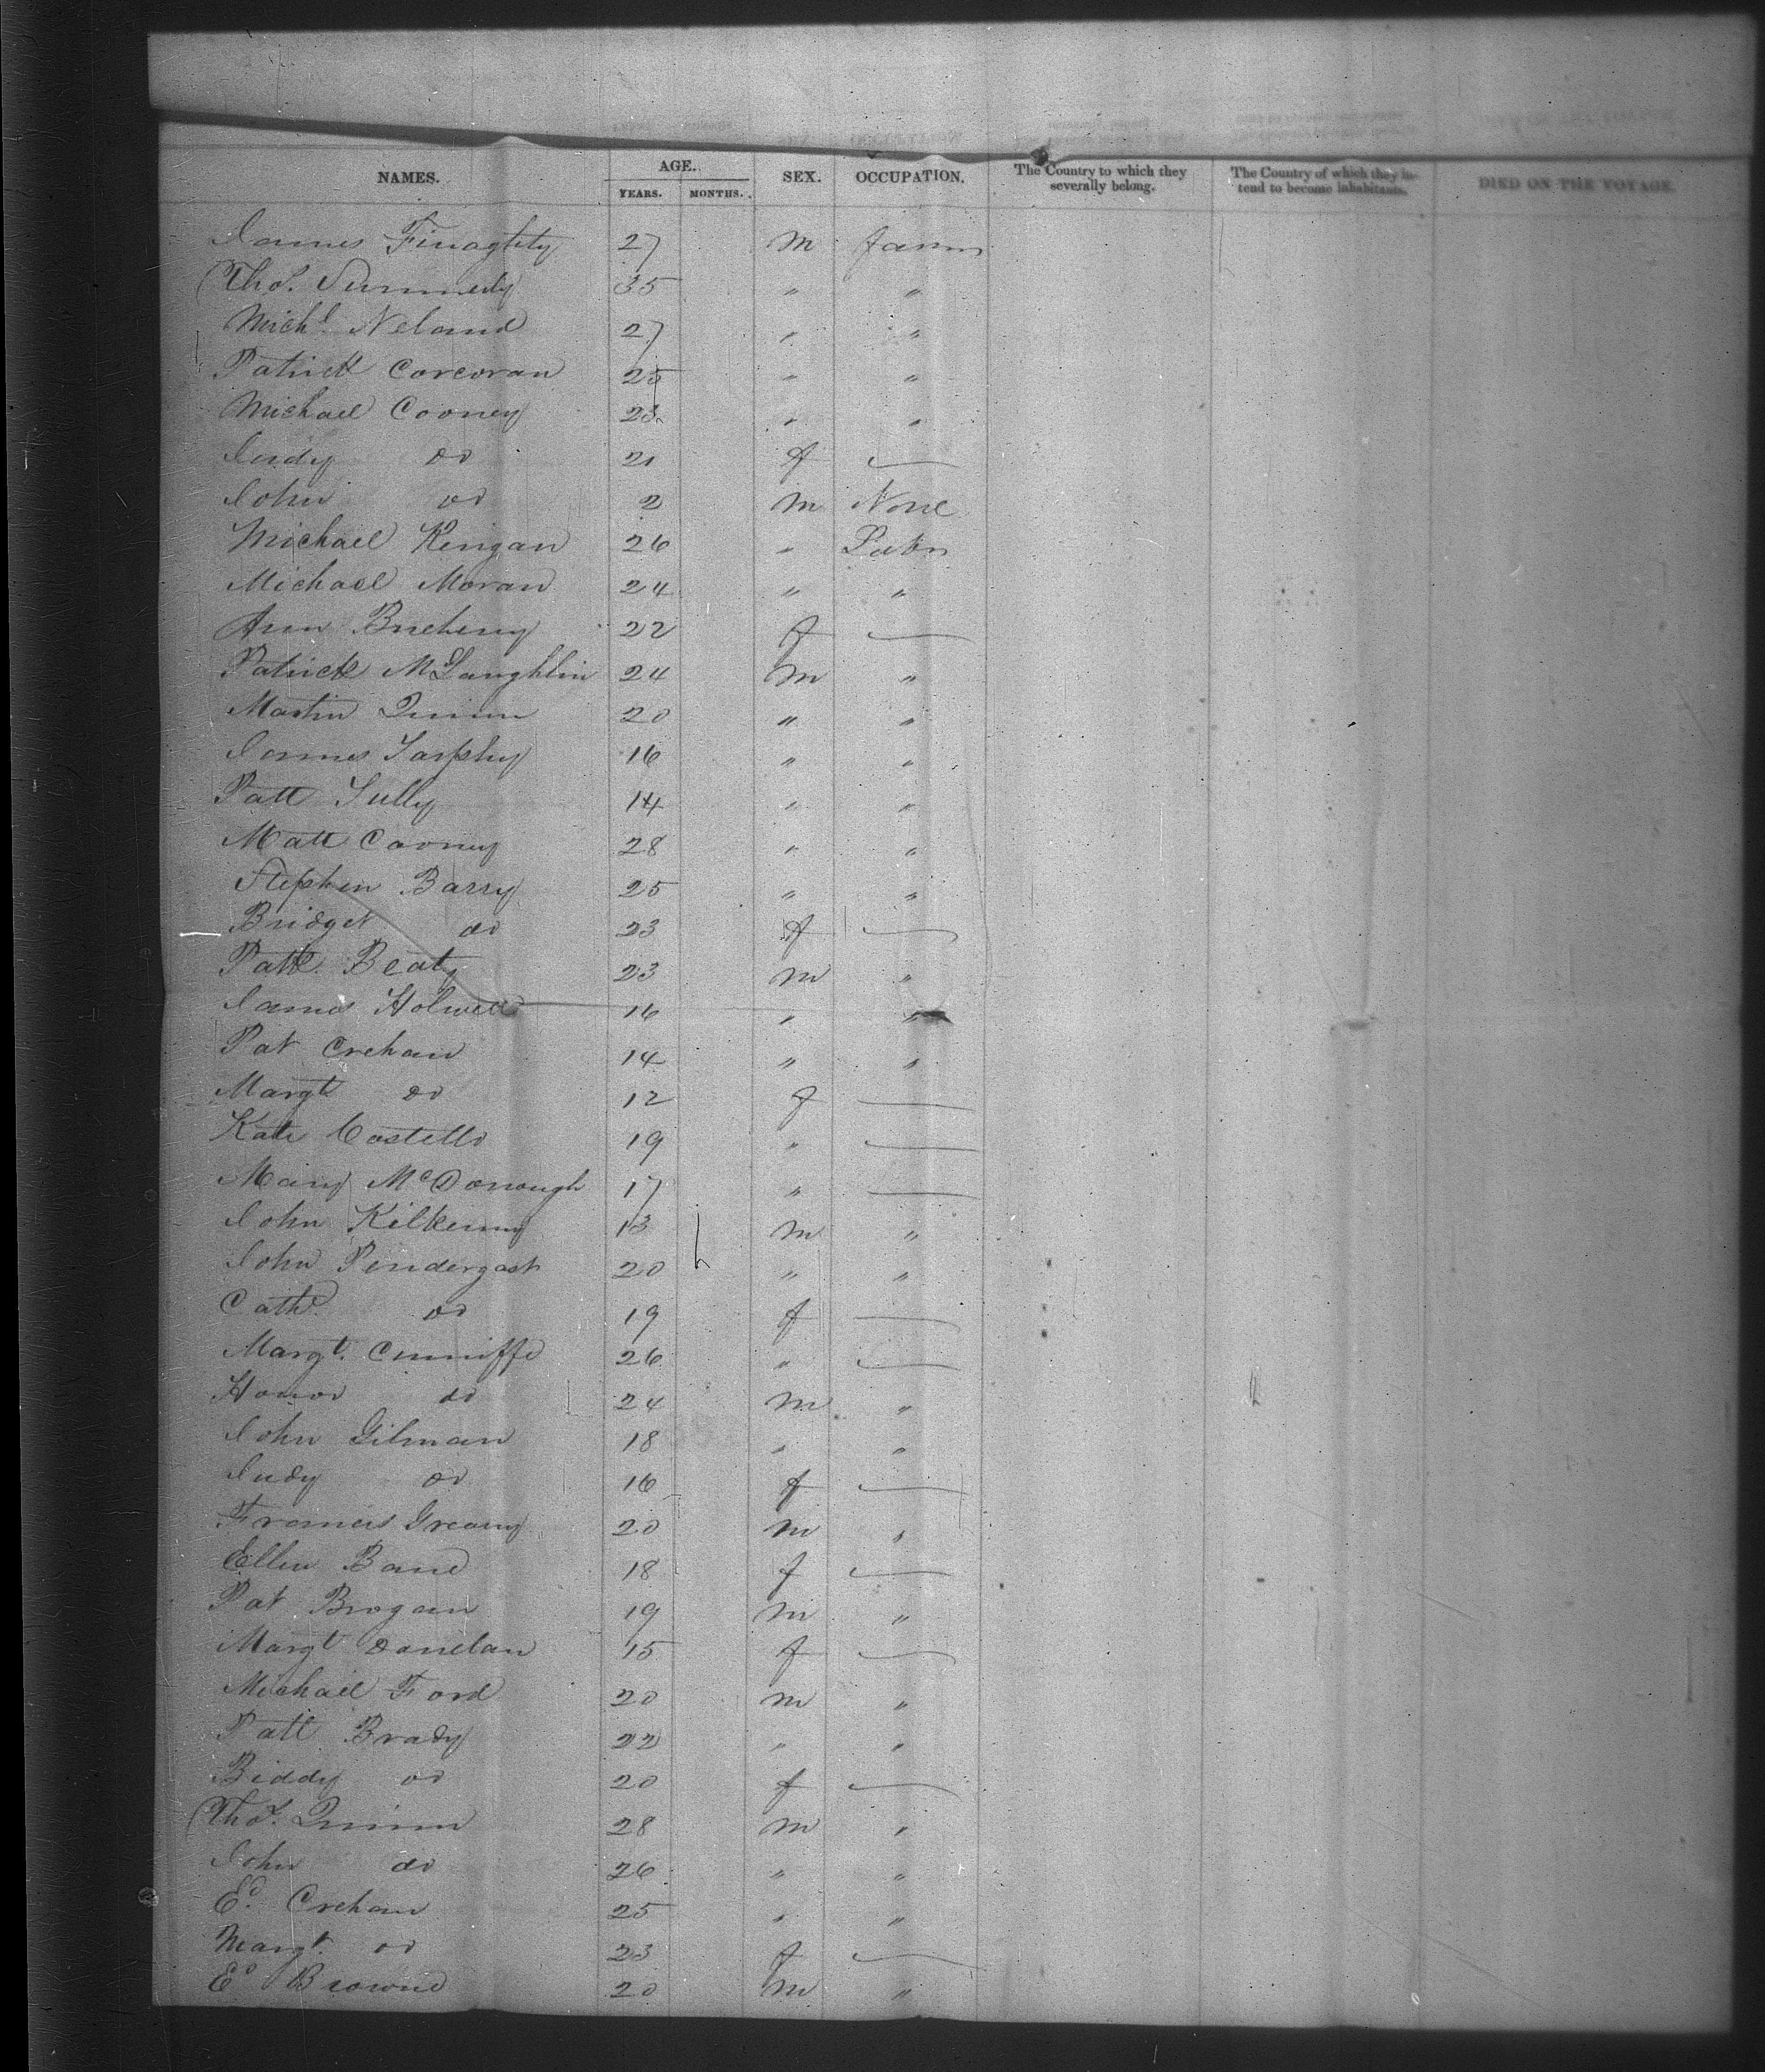 NAMES. AGE. YEARS. MONTHS. SEX. OCCUPATION. The Country to which they severally belong. The Country of which they intend to become inhabitants. DIED ON THE VOYAGE.
James Finaghty 27 M farmr
Thos. 35 " "
Michl. Neland 27 " "
Patrick Corcoran 25 " "
Michael Cooney 23 " "
Judy do 21 f —
John do 2 M None
Michael Kerigan 26 " Labr
Michael Moran 24 " "
Ann 22 f —
Patrick McLaughlin 24 M "
Martin Quinn 20 " "
James Tarphy 16 " "
Patt Tully 14 " "
Matt Cooney 28 " "
Stephen Barry 25 " "
Bridget do 23 f —
Patk. Beaty 23 M "
James Holwell 16 " "
Pat Crehan 14 " "
Margt do 12 f —
Kate Costello 19 " —
Mary McDonough 17 " —
John Kilkenny 13 M "
John Pendergast 20 " "
Cath. do 19 f —
Margt. Cunniffe 26 " —
Honor do 24 M "
John Gilman 18 " "
Judy do 16 f —
Francis Greany 20 M "
Ellen Bane 18 f —
Pat Brogan 19 M "
Margt Donelan 15 f —
Michael Ford 20 M "
Patt Brady 22 " "
Biddy do 20 f —
Thos. Quinn 28 M "
John do 26 " "
Ed. Crehan 25 " "
Margt. do 23 f —
Ed Browne 20 M "